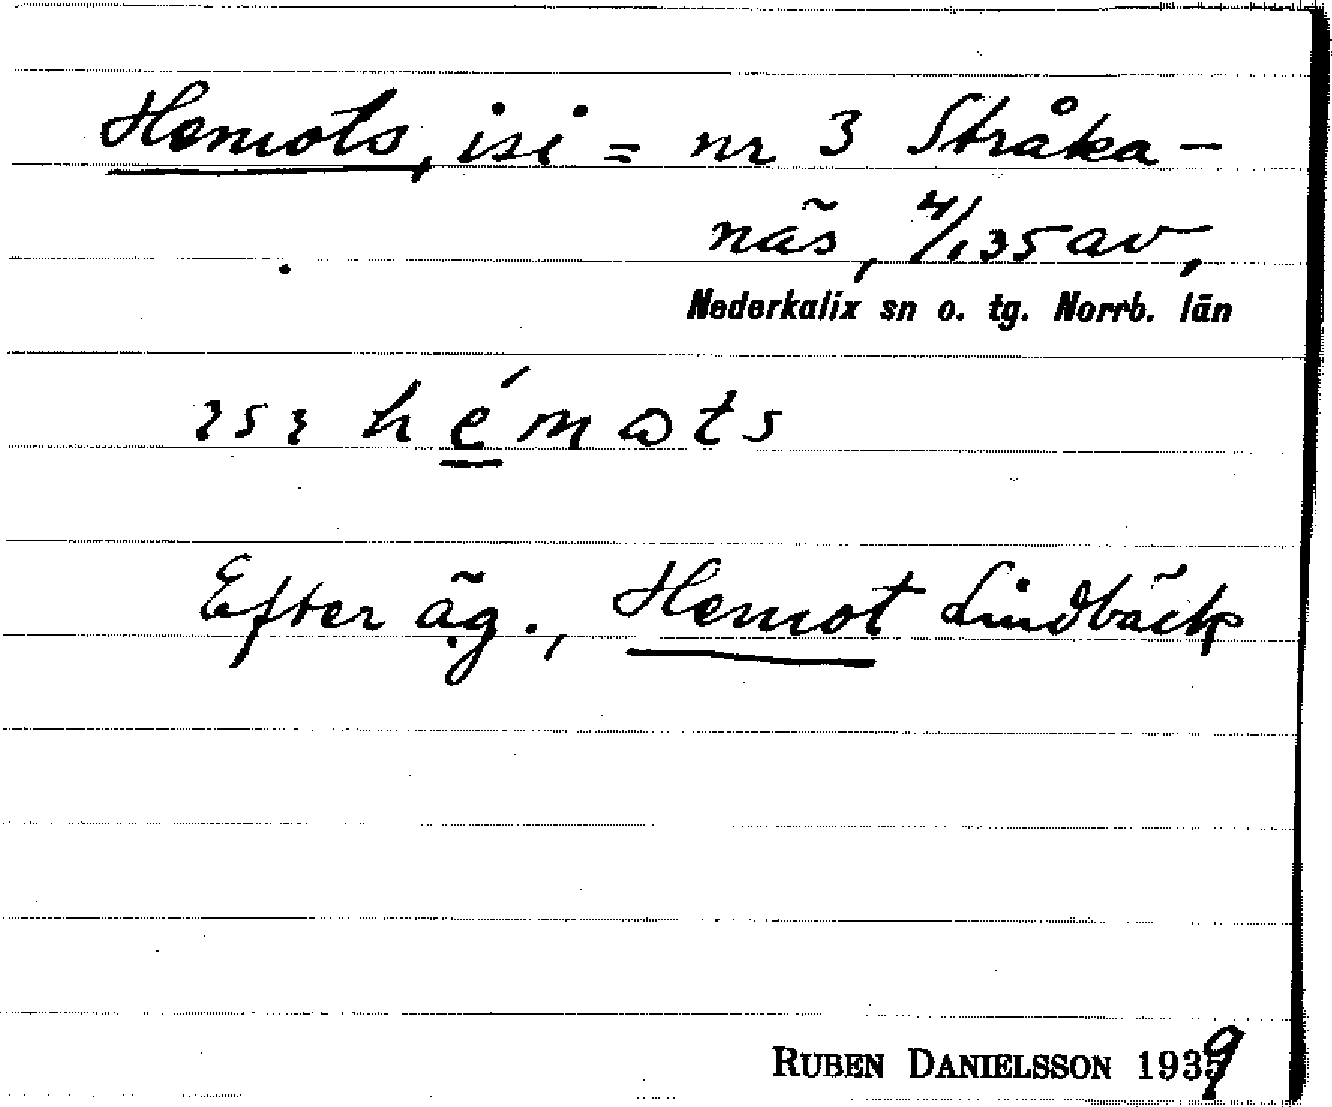 Hemots, isi = nr 3 Stråka-
näs, 4/135 av,
Nederkalix sn o. tg. Norrb. län
ısı hémɷts
Efter äg., Hemot Lindbäck
RUBEN DANIELSSON 1939